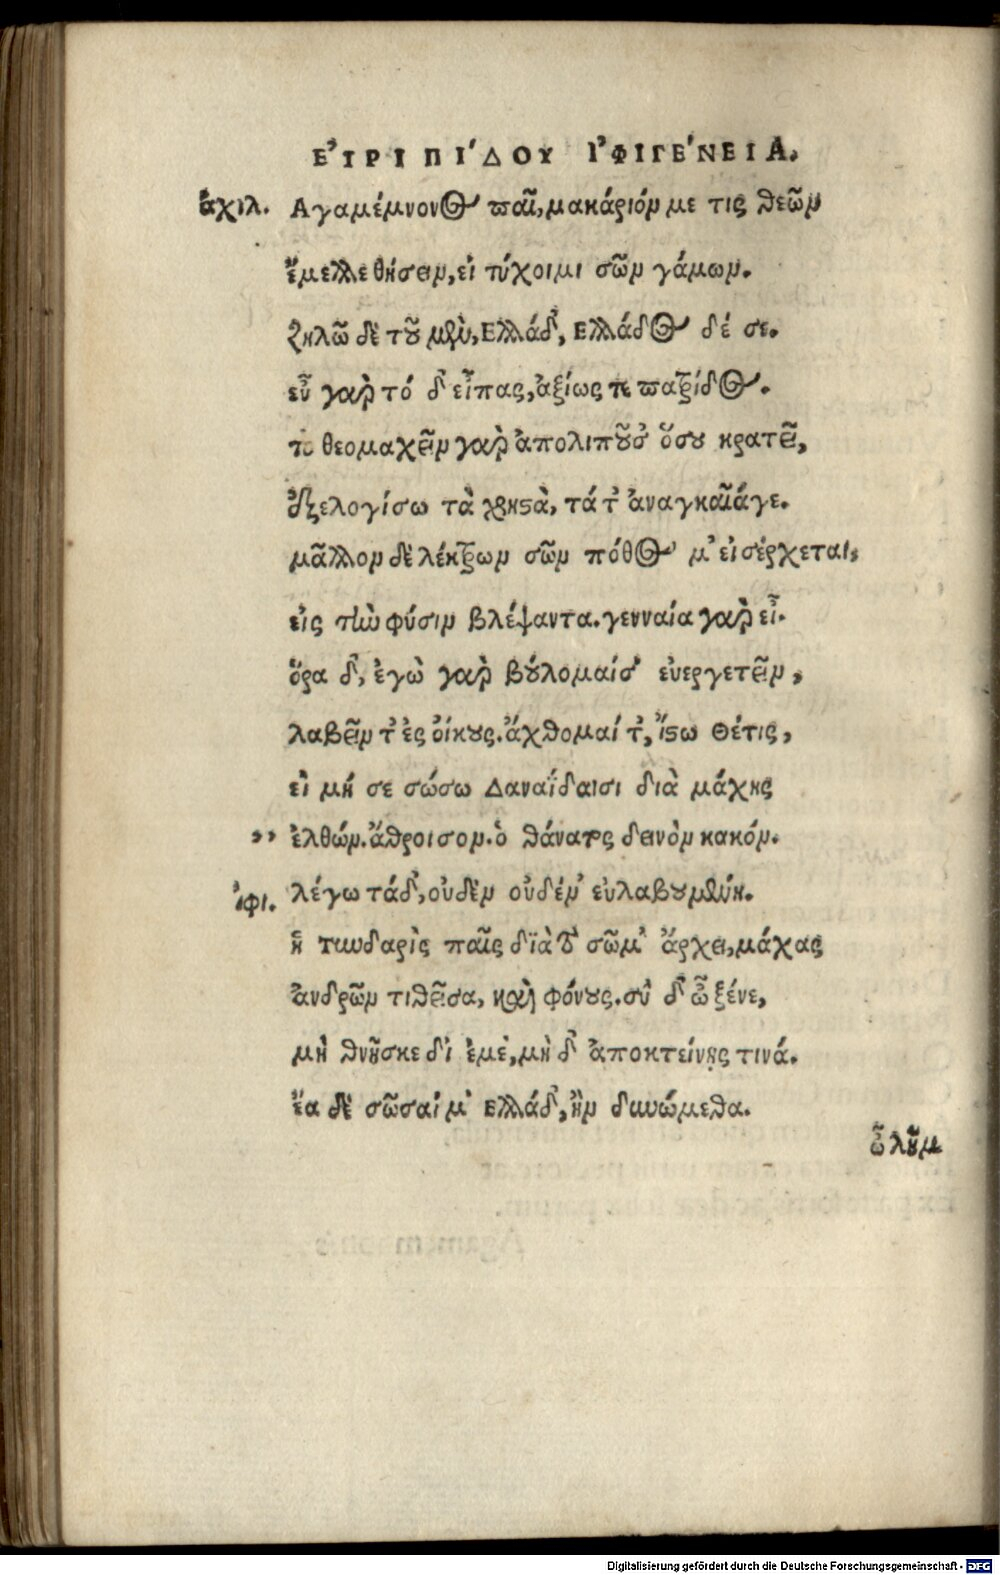 ΕΥ̓ΡΙΠΙ´ΔΟΥ ΙʼΦΙΓΕ´ΝΕΙΑ.
ἀχιλ. Αγαμέμνονος παῖ, μακάριόν με τις θεῶν
ἔμελλε θήσειν, εἰ τύχοιμι σῶν γάμων.
ζηλῶ δὲ τοῦ μὲν, Ελλάδ᾽, Ελλάδος δέ σε.
εὖ γὰρ τό δ᾽ εἶπας, ἀξίως τε πατρίδος.
το θεομαχεῖν γὰρ ἀπολιποῦσ᾽ ὅσου κρατεῖ,
ἐξελογίσω τὰ χρηστὰ, τά τ᾽ ἀναγκαῖάγε.
μᾶλλον δὲ λέκτρων σῶν πόθος μ᾽ εἰσέρχεται,
εἰς τὴν φύσιν βλέψαντα. γενναία γὰρ εἶ.
ὅρα δ᾽, ἐγὼ γὰρ βούλομαίσ᾽ εὐεργετεῖν,
λαβεῖν τ᾽ ἐς οἴκους. ἄχθομαί τ᾽, ἴστω Θέτις,
εἰ μή σε σώσω Δαναΐδαισι διὰ μάχης
,, ἐλθών. ἄθροισον. ὁ θάνατος δεινὸν κακόν.
ἰφι. λέγω τάδ᾽, οὐδὲν οὐδέν᾽ εὐλαβουμένη.
ἡ τυνδαρὶς παῖς δϊὰ τὸ σῶμ᾽ ἄρχει, μάχας
ἀνδρῶν τιθεῖσα, καὶ φόνους. σὺ δ᾽ ὦ ξένε,
μὴ θνῆσκε δι ἐμὲ, μὴ δ᾽ ἀποκτείνῃς τινά.
ἔα δὲ σῶσαί μ᾽ Ελλάδ᾽, ἢν δυνώμεθα.
ὦ λῆμ
Digitalisierung gefördert durch die Deutsche Forschungsgemeinschaft - DFG